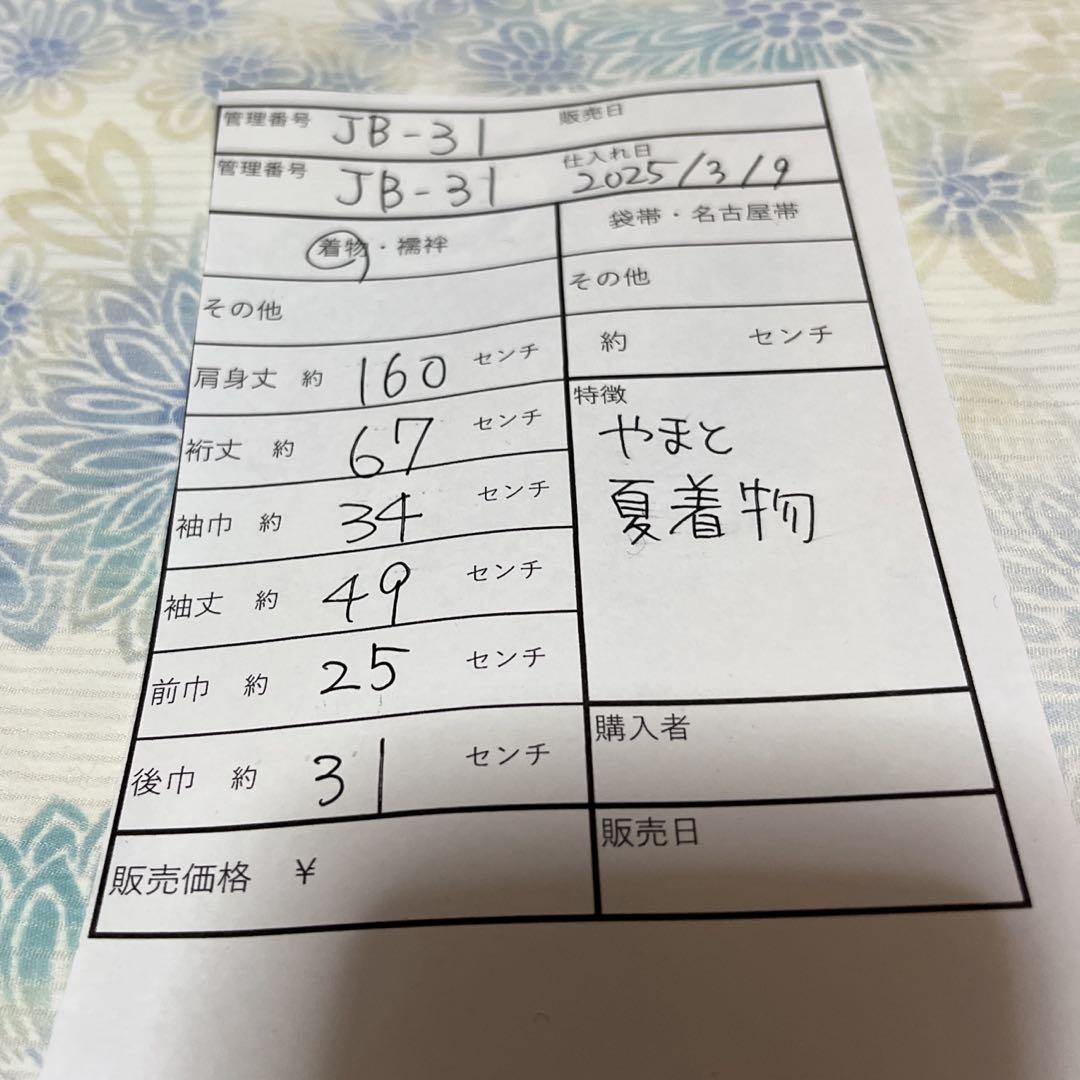 管理番号 JB-31 販売日
管理番号 JB-31 仕入れ日 2025/3/9
着物・襦袢
その他
肩身丈 約 160 センチ
裄丈 約 67 センチ
袖巾 約 34 センチ
袖丈 約 49 センチ
前巾 約 25 センチ
後巾 約 31 センチ
販売価格 ¥
袋帯・名古屋帯
その他
約 センチ
特徴
やまと
夏着物
購入者
販売日